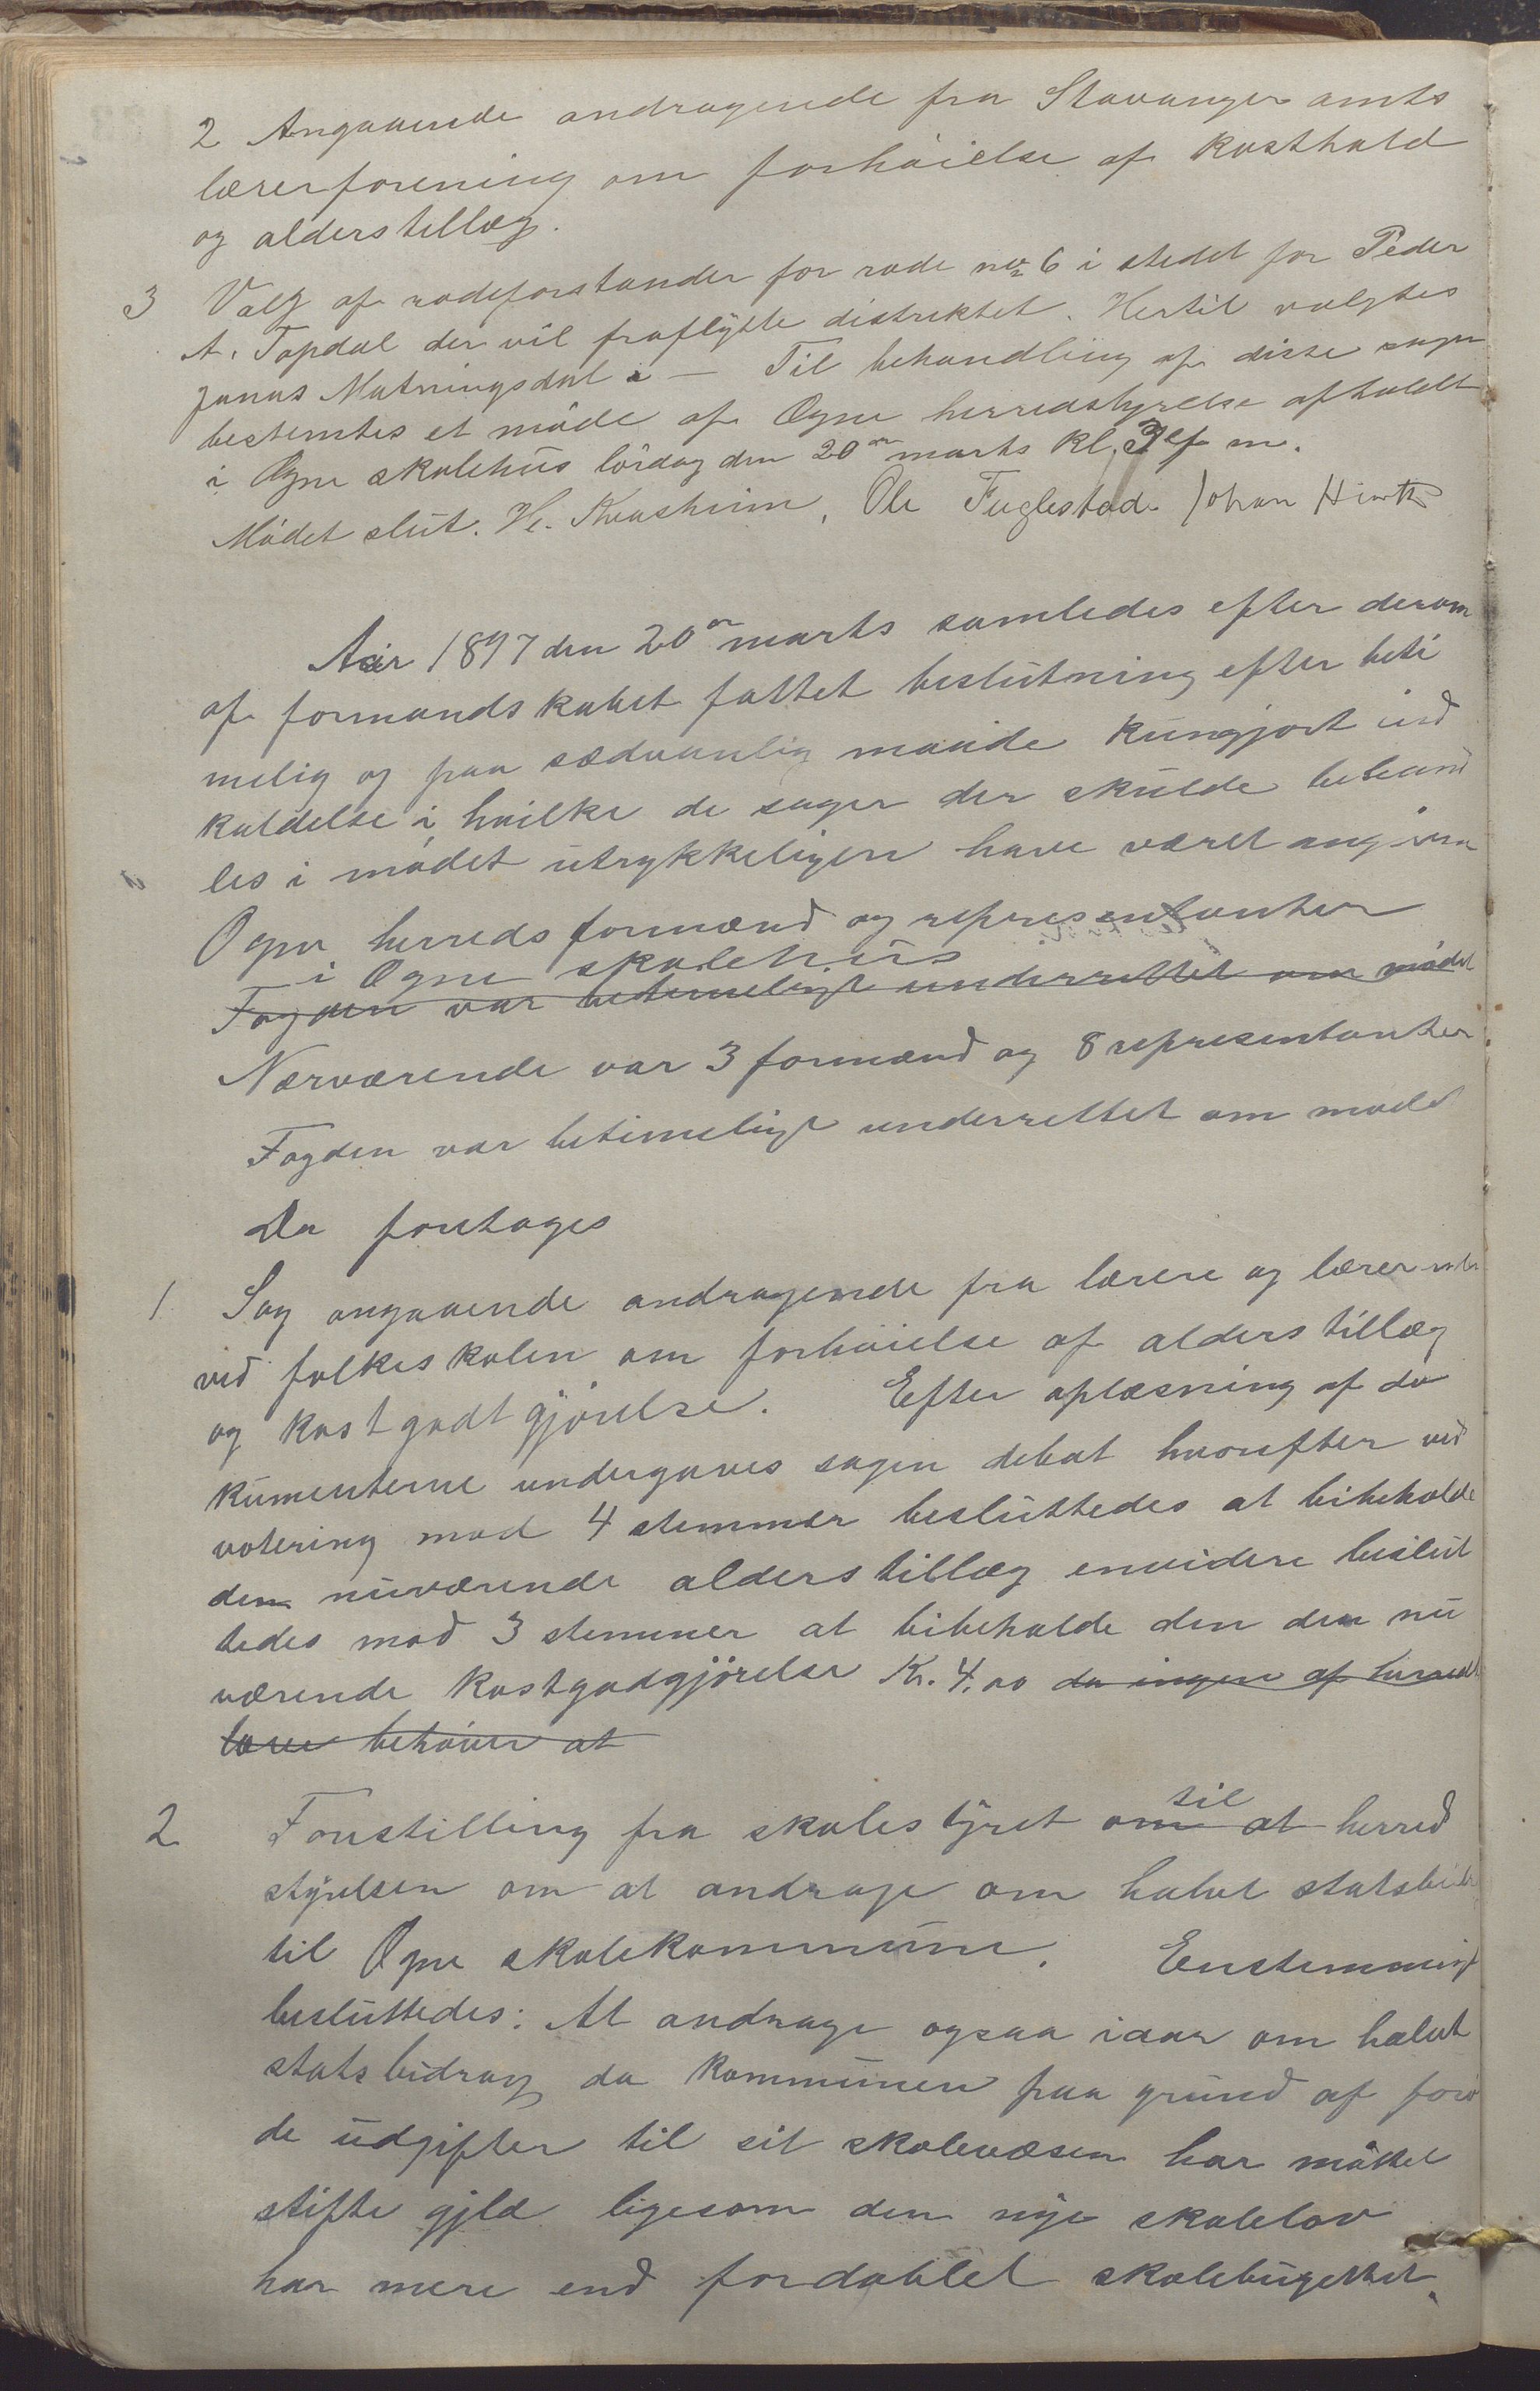 2 Angaaende andragende fra Stavanger amts
lærerforening om forhöielse af kosthold
og alderstillæg.
3 Valg af rodeforstander for rode no 6 i stedet for Peder
A. Tapdal der vil fraflytte distriktet. Hertil valgtes
Jonas Matningsdal. — Til behandling af disse sager
bestemtes et möde af Ogne herredstyrelse afholdt
i Ogne skolehus lördag den 20de marts kl. 3 ef m.
Mödet slut. H. Kvasheim, Ole Fuglestad. Johan
Aar 1897 den 20de marts samledes efter derom
af formandskabet fattet beslutning efter beti
melig og paa sædvanlig maade kungjort ind
kaldelse i hvilke de sager der skulde behand
les i mödet utrykkeligen have været angivne
Ogne herreds formænd og representanter
i Ogne skolehus
Fogden var betimeligt underrettet om mödet
Nærværende var 3 formænd og 8 representanter.
Fogden var betimeligt underrettet om mödet
Da foretoges
1 Sag angaaende andragende fra lærere og lærerinder
ved folkeskolen om forhöielse af alderstillæg
og kostgodtgjörelse. Efter oplæsning af do
kumenterne undergaves sagen debat hvorefter ved
votering mod 4 stemmer besluttedes at bibeholde
den nuværende alderstillæg envidere beslut
tedes mod 3 stemmer at bibeholde den den nu
værende kostgodgjörelse Kr. 4.00 da ingen af herredets
lærer behöver at
2 Forestilling fra skolestyret om at til herred
styrelsen om at andrage om halvt statsbidr
til Ogne skolekommune. Enstemmigt
besluttedes: At andrage ogsaa iaar om halvt
statsbidrag da kommunen paa grund af forö
de udgifter til sit skolevæsen har måttet
stifte gjld ligesom den nye skolelov
har mere end fordoblet skolebugettet.